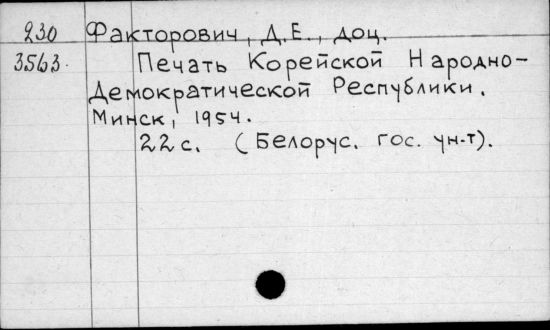 230 Факторович, Д.Е., доц.
3563. Печать Корейской Народно-
Демократической Республики.
Минск, 1954.
22 с. (Белорус. гос. ун-т).